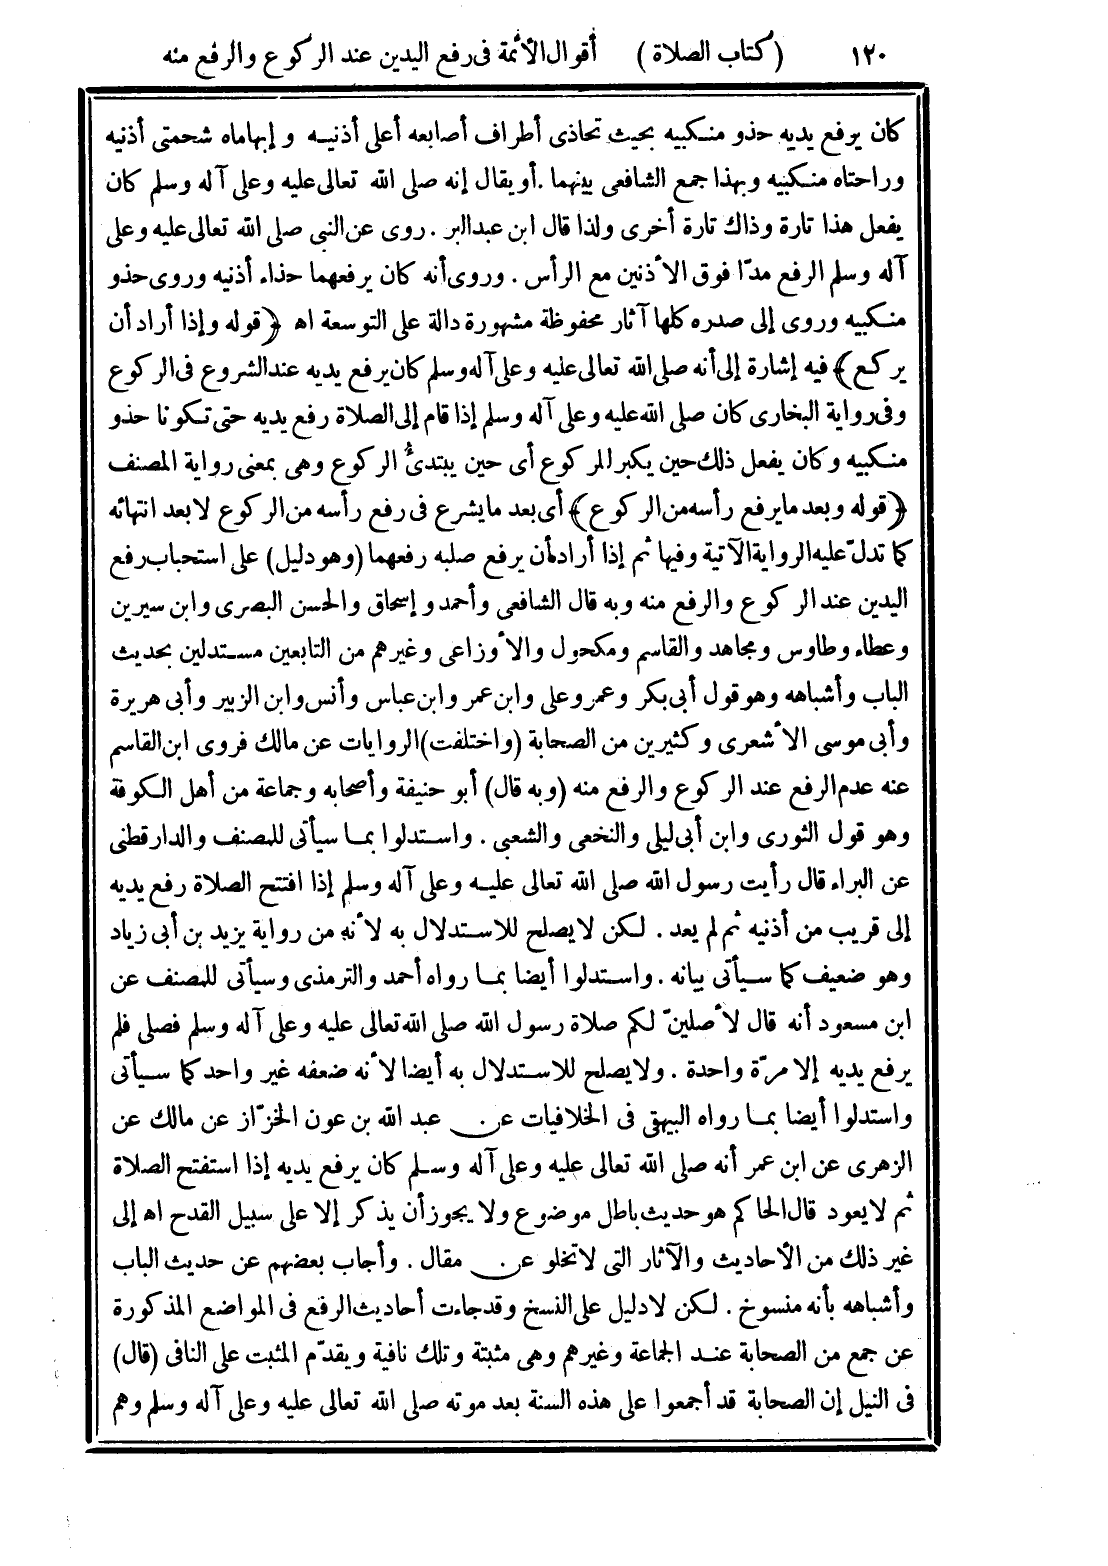 ١٢٠ (كتاب الصلاة) أقوال الأئمة فى رفع اليدين عند الركوع والرفع منه
كان يرفع يديه حذو منكبيه بحيث تحاذى أطراف أصابعه أعلى أذنيه وإبهاماه شحمتى أذنيه
وراحتاه منكبيه وبهذا جمع الشافعى بينهما . أو يقال إنه صلى الله تعالى عليه وعلى آله وسلم كان
يفعل هذا تارة وذاك تارة أخرى ولذا قال ابن عبد البر . روى عن النبى صلى الله تعالى عليه وعلى
آله وسلم الرفع مدّا فوق الأذنين مع الرأس . وروى أنه كان يرفعهما حذاء أذنيه وروى حذو
منكبيه وروى إلى صدره كلها آثار محفوظة مشهورة دالة على التوسعة اه ﴿قوله وإذا أراد أن
يركع﴾ فيه إشارة إلى أنه صلى الله تعالى عليه وعلى آله وسلم كان يرفع يديه عند الشروع فى الركوع
وفى رواية البخارى كان صلى الله عليه وعلى آله وسلم إذا قام إلى الصلاة رفع يديه حتى تكونا حذو
منكبيه وكان يفعل ذلك حين يكبر للركوع أى حين يبتدئُ الركوع وهى بمعنى رواية المصنف
﴿قوله وبعد ما يرفع رأسه من الركوع﴾ أى بعد ما يشرع فى رفع رأسه من الركوع لا بعد انتهائه
كما تدلّ عليه الرواية الآتية وفيها ثم إذا أراد أن يرفع صلبه رفعهما (وهو دليل) على استحباب رفع
اليدين عند الركوع والرفع منه وبه قال الشافعى وأحمد وإسحاق والحسن البصرى وابن سيرين
وعطاء وطاوس ومجاهد والقاسم ومكحول والأوزاعى وغيرهم من التابعين مستدلين بحديث
الباب وأشباهه وهو قول أبى بكر وعمر وعلى وابن عمر وابن عباس وأنس وابن الزبير وأبى هريرة
وأبى موسى الأشعرى وكثيرين من الصحابة (واختلفت) الروايات عن مالك فروى ابن القاسم
عنه عدم الرفع عند الركوع والرفع منه (وبه قال) أبو حنيفة وأصحابه وجماعة من أهل الكوفة
وهو قول الثورى وابن أبى ليلى والنخعى والشعبى . واستدلوا بما سيأتى للمصنف والدارقطنى
عن البراء قال رأيت رسول الله صلى الله تعالى عليه وعلى آله وسلم إذا افتتح الصلاة رفع يديه
إلى قريب من أذنيه ثم لم يعد . لكن لا يصلح للاستدلال به لأنه من رواية يزيد بن أبى زياد
وهو ضعيف كما سيأتى بيانه . واستدلوا أيضا بما رواه أحمد والترمذى وسيأتى للمصنف عن
ابن مسعود أنه قال لأصلينّ لكم صلاة رسول الله صلى الله تعالى عليه وعلى آله وسلم فصلى فلم
يرفع يديه إلا مرّة واحدة . ولا يصلح للاستدلال به أيضا لأنه ضعفه غير واحد كما سيأتى
واستدلوا أيضا بما رواه البيهقى فى الخلافيات عن عبد الله بن عون الخرّاز عن مالك عن
الزهرى عن ابن عمر أنه صلى الله تعالى عليه وعلى آله وسلم كان يرفع يديه إذا استفتح الصلاة
ثم لا يعود قال الحاكم هو حديث باطل موضوع ولا يجوز أن يذكر إلا على سبيل القدح اه إلى
غير ذلك من الأحاديث والآثار التى لا تخلو عن مقال . وأجاب بعضهم عن حديث الباب
وأشباهه بأنه منسوخ . لكن لا دليل على النسخ وقد جاءت أحاديث الرفع فى المواضع المذكورة
عن جمع من الصحابة عند الجماعة وغيرهم وهى مثبتة وتلك نافية ويقدّم المثبت على النافى (قال)
فى النيل إن الصحابة قد أجمعوا على هذه السنة بعد موته صلى الله تعالى عليه وعلى آله وسلم وهم